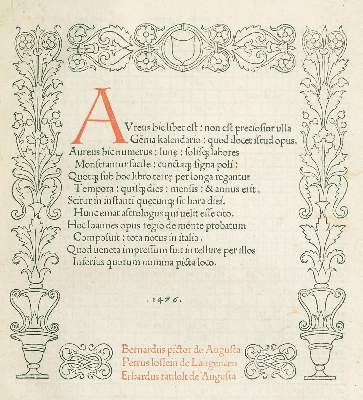 AVreus hic liber est: non est preciosior ulla
Gēma kalendario: quod docet istud opus.
Aureus hic numerus: lunę: solisq; labores
Monstrantur facile: cunctaq; signa poli:
Quotq; sub hoc libro terrę per longa regantur
Tempora: quisq; dies: mensis: & annus erit.
Scitur in instanti quecunq; sit hora diei.
Hunc emat astrologus qui velit esse cito.
Hoc Ioannes opus regio de monte probatum
Composuit: tota notus in italia.
Quod veneta impressum fuit in tellure per illos
Inferius quorum nomina picta loco.
.1476.
Bernardus pictor de Augusta
Petrus loslein de Langencen
Erhardus ratdolt de Augusta